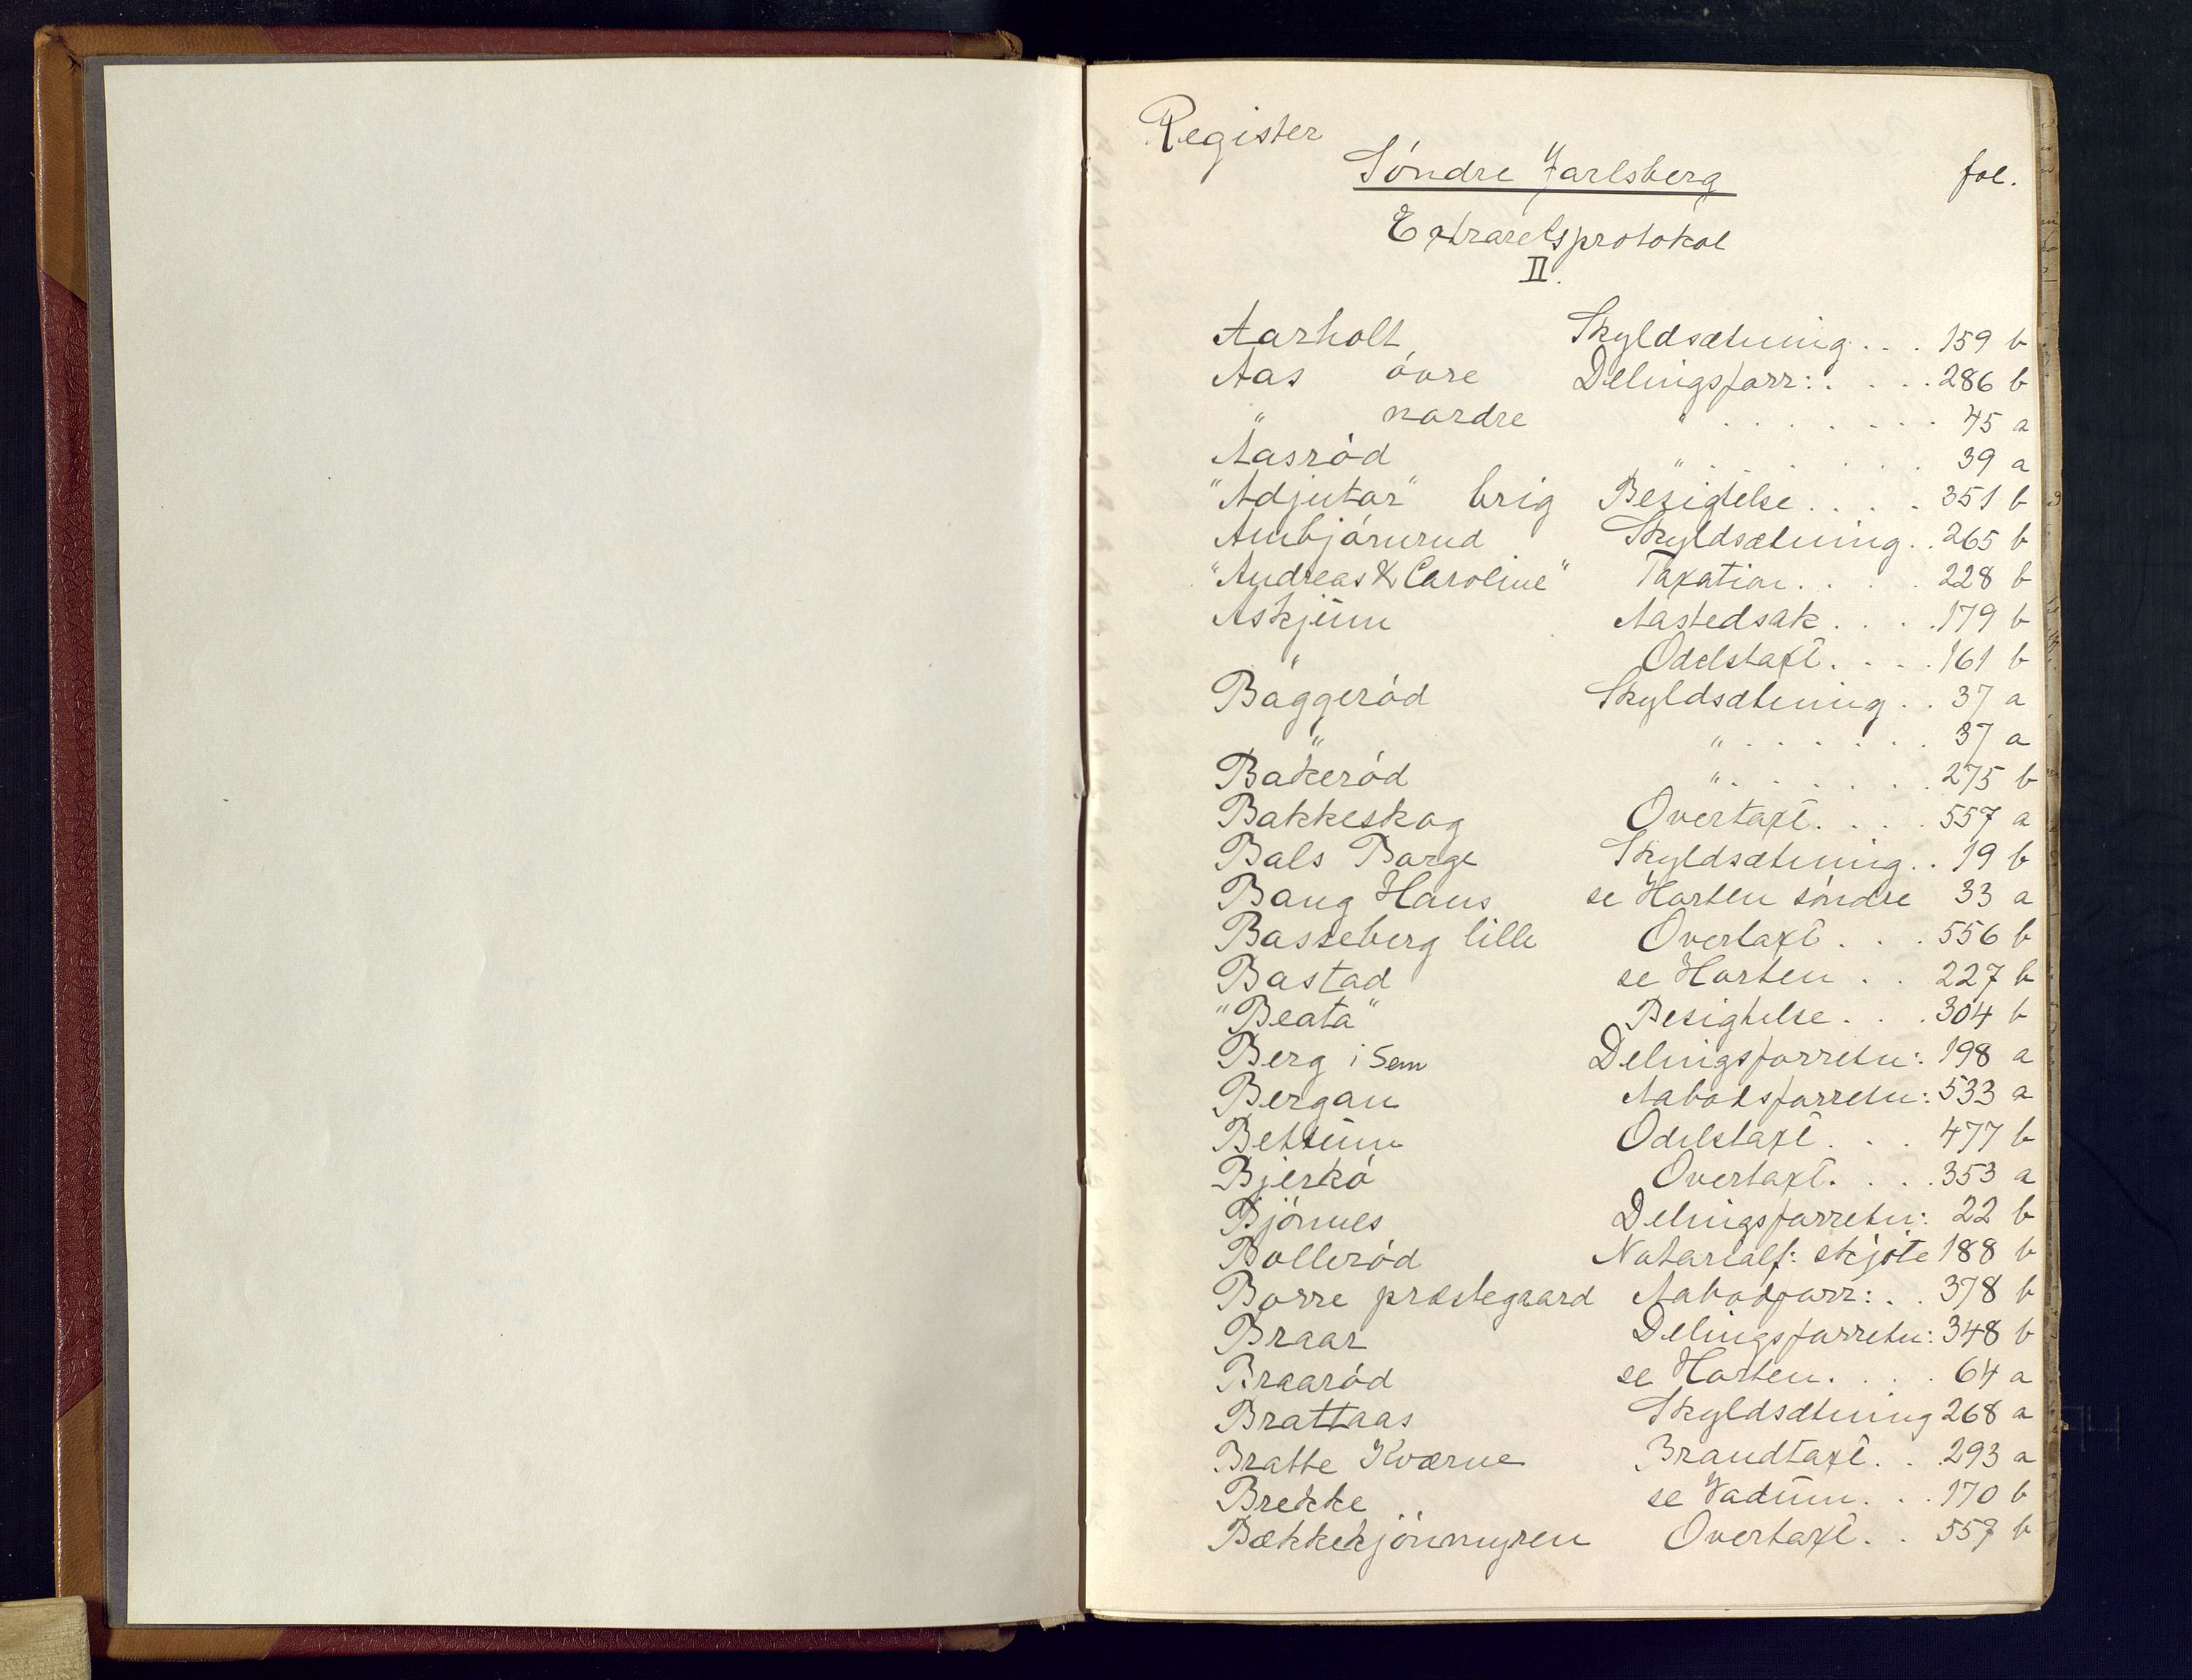 Register
Söndre Jarlsberg fol.
Extraretsprotokol
II.
Aarholt Skyldsætning . . . 159 b
Aas övre Delingsforr: . . . . 286 b
" nordre " . . . . . . . . 45 a
Aasröd " . . . . . . 39 a
"Adjutor" brig Besigtelse . . . . 351 b
Ambjörnrud Skyldsætning . . 265 b
"Andreas & Caroline" Taxation . . . . 228 b
Askjum Aastedsak . . . . 179 b
" Odelstaxt . . . . 161 b
Baggeröd Skyldsætning . . 37 a
" " . . . . . . . 37 a
Bakeröd " . . . . . . . 275 b
Bakkeskog Overtaxt . . . . 557 a
Bals Borge Skyldsætning . . 19 b
Bang Hans se Horten söndre 33 a
Basseberg lille Overtaxt . . . 556 b
Bastad se Horten . . 227 b
"Beata" Besigtelse . . . 304 b
Berg i Sem Delingsforretn: 198 a
Bergan Aabodsforretn: 533 a
Bettum Odelstaxt . . . 477 b
Bjerkö Overtaxt . . . . 353 a
Bjönnes Delingsforretn: 22 b
Bolleröd Notarialf: skjöte 188 b
Borre præstegaard Aabodforr: . . 378 b
Braar Delingsforretn: 348 b
Braaröd se Horten . . . . 64 a
Brattaas Skyldsætning 268 a
Bratte Kværne Brandtaxt . . . 293 a
Brekke se Vadum . . . 170 b
Bækkekjönmyren Overtaxt . . 559 b